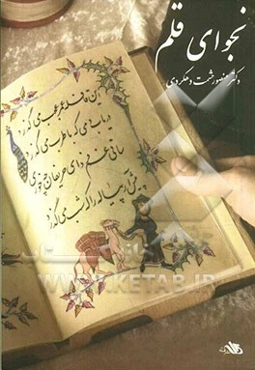 نجوای قلم
دکتر منصور رشمت دهکردی
این قافله عمر عجب می‌گذرد
دریاب دمی که با طرب می‌گذرد
ساقی غم فردای حریفان چه خوری
پیش آر پیاله را که شب می‌گذرد
WWW.KETAB.IR